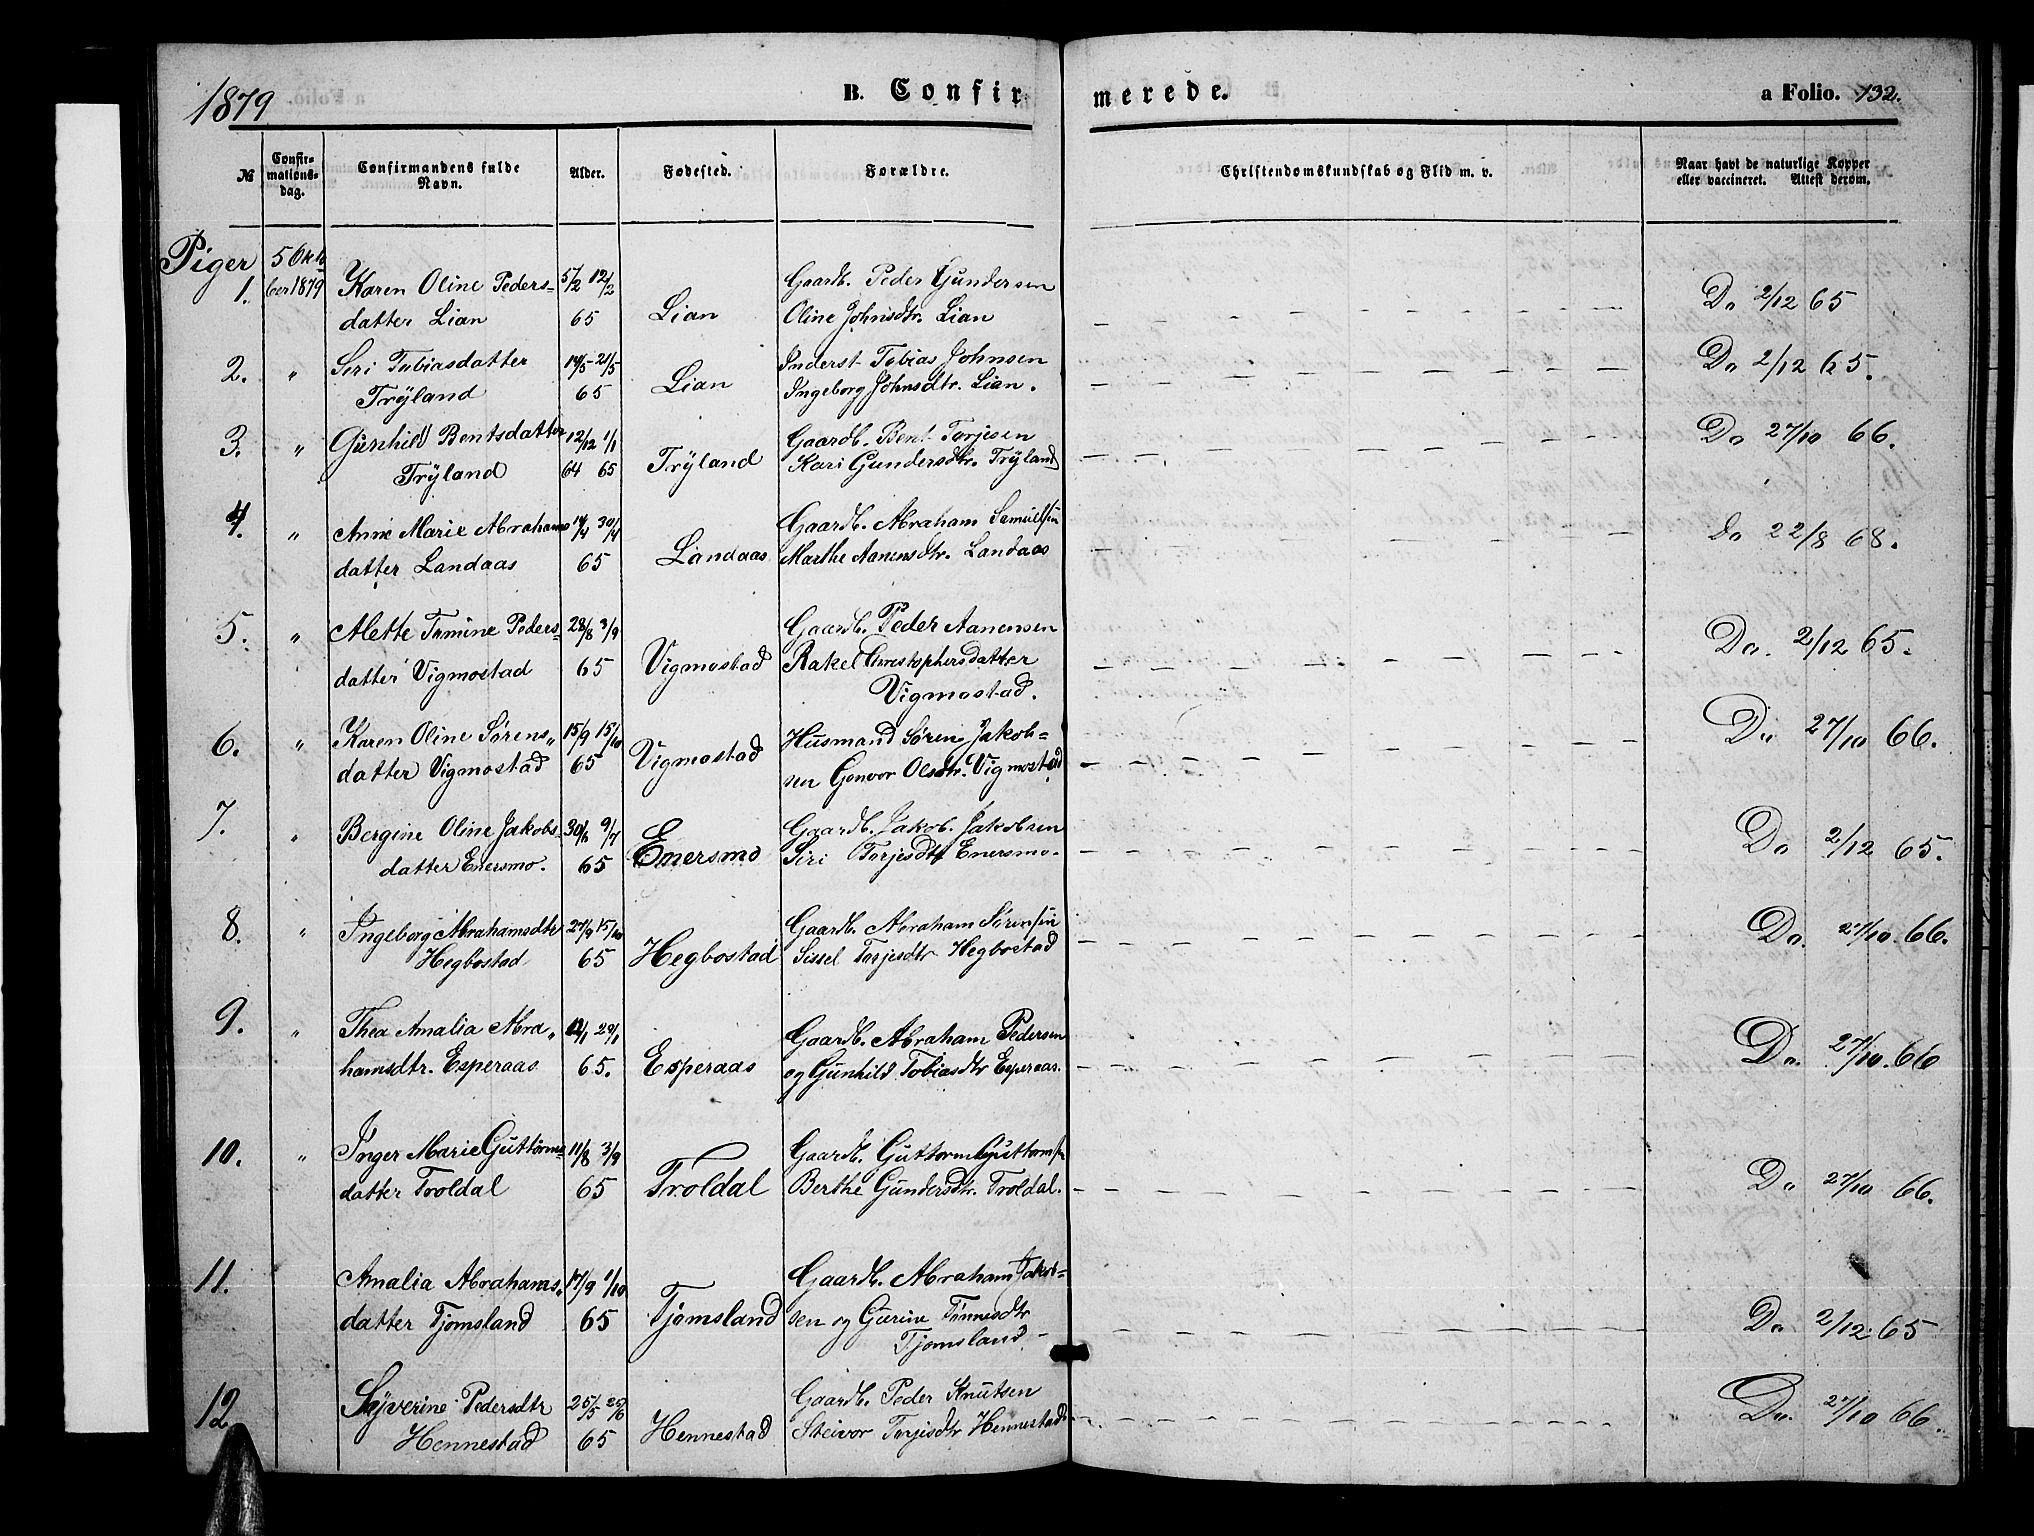 1879
B. Confirmerede.
a Folio. 132.
№ Confirmationsdag. Confirmandens fulde Navn. Alder. Fødested. Forældre. Christendomskundskab og Flid m. v. Naar havt de naturlige Kopper eller vaccineret. Attest derom.
Piger 5 Okto
1. ber 1879 Karen Oline Peders- 5/2 12/2 Gaardb. Peder Gundersen Do 2/12 65
datter Lian 65 Lian Oline Johnsdtr. Lian
2. " Siri Tobiasdatter 14/5 21/5 Inderst Tobias Johnsen Do 2/12 65.
Trÿland 65 Lian Ingeborg Johnsdtr. Lian.
3. " Gunhild Bentsdatter 12/12 1/1 Gaardb. Bent Torjesen Do 27/10 66.
Trÿland 64 65 Trÿland Kari Gundersdtr. Trÿland
4. " Anne Marie Abrahams 14/4 30/4 Gaardb. Abraham Samuelsen Do 22/8 68.
datter Landaas 65 Landaas Marthe Aanensdtr. Landaas
5. " Alette Tomine Peders- 28/8 3/9 Gaardb. Peder Aanensen Do. 2/12 65.
datter Vigmostad 65 Vigmostad Rakel Christophersdatter
Vigmostad.
6. " Karen Oline Sørens„ 15/9 15/10 Husmand Søren Jakob= Do 27/10 66.
datter Vigmostad 65 Vigmostad sen Gonvor Olsdtr. Vigmostad
7. " Bergine Oline Jakobs- 30/6 9/7 Gaardb. Jakob Jakobsen Do 2/12 65.
datter Enersmo. 65 Enersmo Siri Torjesdtr Enersmo.
8. " Ingeborg Abrahamsdtr 27/9 15/10 Gaardb. Abraham Sørensen Do. 27/10. 66.
Hegbostad 65 Hegbostad Sissel Torjesdtr Hegbostad
9. " Thea Amalia Abra„ 29/1 Gaardb. Abraham Pedersen Do. 27/10. 66
hamsdtr. Esperaas 65. Esperaas og Gunhild Tobiasdtr Esperaas.
10. " Inger Marie Guttorms= 11/8 3/9 Gaardb. Guttorm Guttormsen Do 27/10 66.
datter Troldal 65 Troldal Berthe Gundersdtr. Troldal.
11. Amalia Abrahams„ 17/9 1/10 Gaardb. Abraham Jakob=
datter Tjomsland 65 Tjomsland sen og Gurine Tønnesdtr Do 2/12. 65
Tjomsland
12 Syverine Pedersdtr 25/5 25/6 Gaardb. Peder Knutsen Do. 27/10 66.
Hennestad 65 Hennestad Steivor Torjisdtr Hennestad